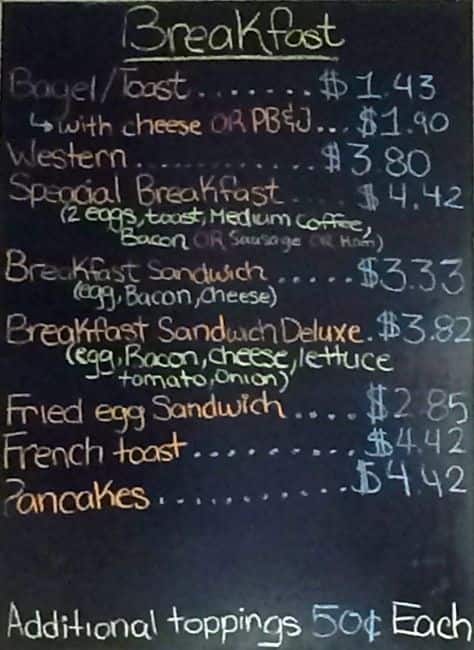 Breakfast
Bagel/Toast.......$1.43
↳with cheese OR PB&J...$1.90
Western............$3.80
Speacial Breakfast....$4.42
(2 eggs, toast, Medium coffee,
Bacon OR Sausage OR Ham)
Breakfast Sandwich.....$3.33
(egg, Bacon, cheese)
Breakfast Sandwich Deluxe.$3.82
(egg, Bacon, cheese, lettuce
tomato, Onion)
Fried egg Sandwich....$2.85
French toast..........$4.42
Pancakes............$4.42
Additional toppings 50¢ Each